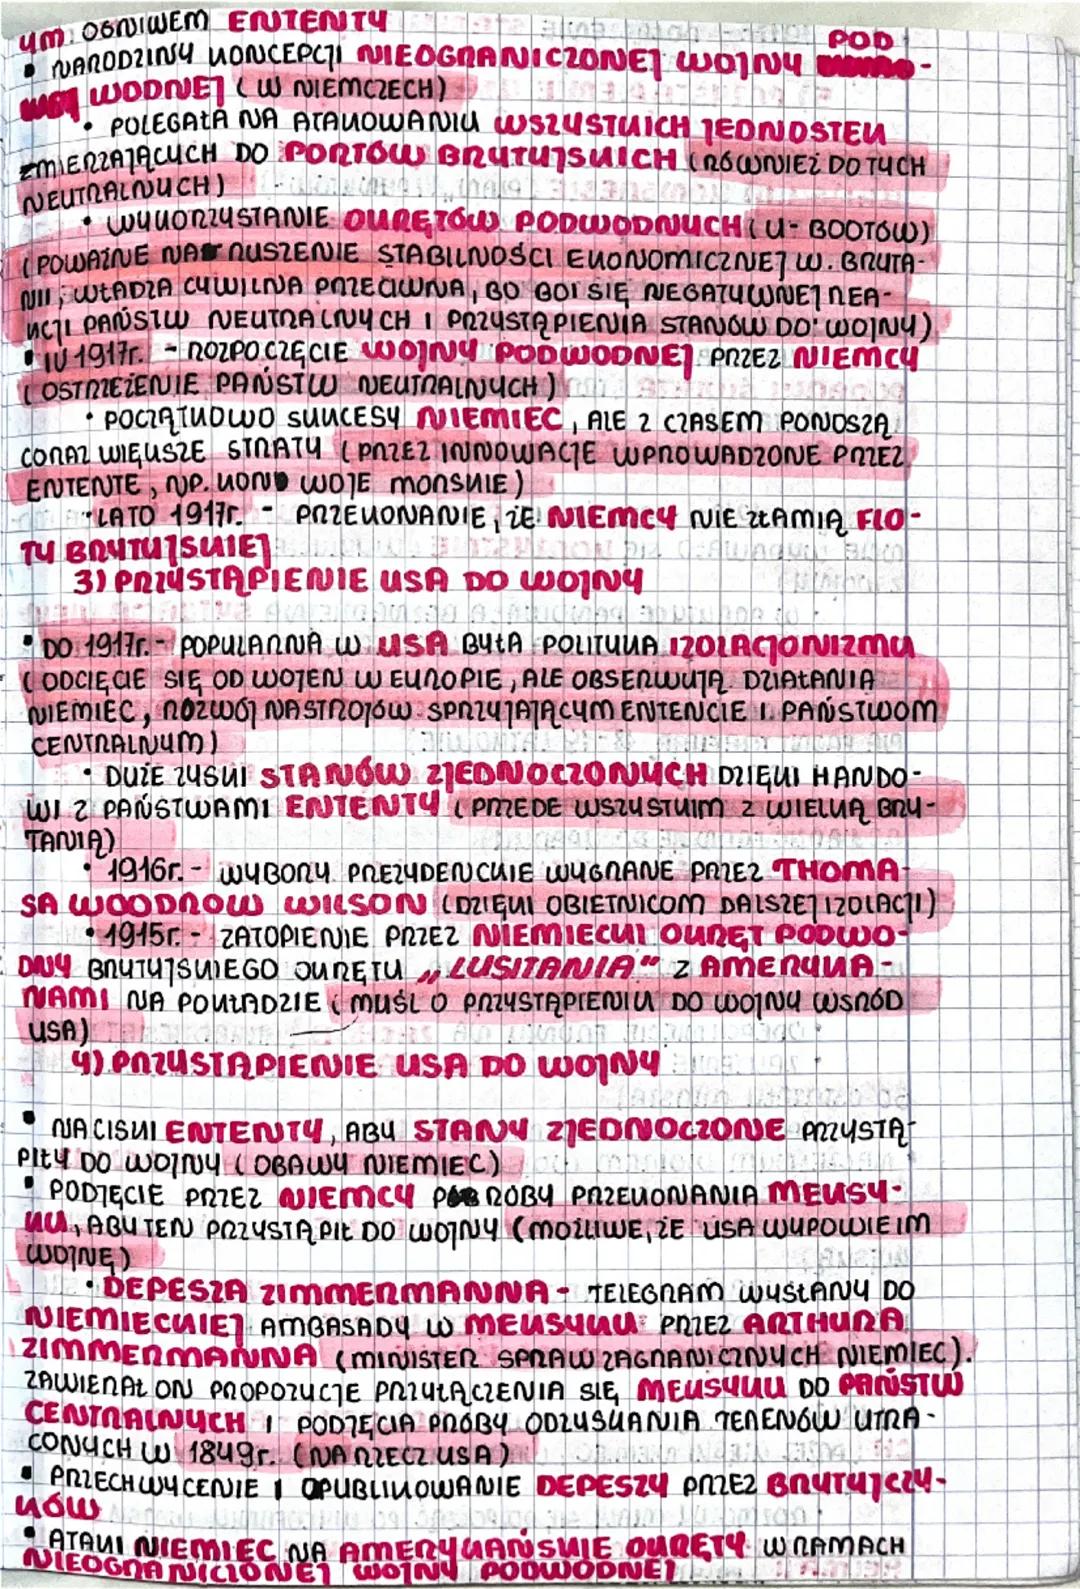 YM. OGNIWEM ENTENTY
• NARODZINY KONCEPCJI NIEOGRANICZONEJ WOJNY POD-
WODNEJ (W NIEMCZECH)
• POLEGAŁA NA ATAKOWANIU WSZYSTKICH JEDNOSTEK
ZMIERZAJĄCYCH DO PORTÓW BRYTYJSKICH (RÓWNIEŻ DO TYCH
NEUTRALNYCH)
• WYKORZYSTANIE OKRĘTÓW PODWODNYCH (U-BOOTÓW)
(POWAŻNE NARUSZENIE STABILNOŚCI EKONOMICZNEJ W. BRYTA-
NII, WŁADZA CYWILNA PRZECIWNA, BO BOI SIĘ NEGATYWNEJ REA-
KCJI PAŃSTW NEUTRALNYCH I PRZYSTĄPIENIA STANÓW DO WOJNY)
• IV 1917r. - ROZPOCZĘCIE WOJNY PODWODNEJ PRZEZ NIEMCY
(OSTRZEŻENIE PAŃSTW NEUTRALNYCH)
• POCZĄTKOWO SUKCESY NIEMIEC, ALE Z CZASEM PONOSZĄ
CORAZ WIĘKSZE STRATY (PRZEZ INNOWACJE WPROWADZONE PRZEZ
ENTENTE, NP. KONWOJE MORSKIE)
• LATO 1917r. - PRZEKONANIE, ŻE NIEMCY NIE ZŁAMIĄ FLO-
TY BRYTYJSKIEJ
3) PRZYSTĄPIENIE USA DO WOJNY
• DO 1917r. - POPULARNA W USA BYŁA POLITYKA IZOLACJONIZMU
(ODCIĘCIE SIĘ OD WOJEN W EUROPIE, ALE OBSERWUJĄ DZIAŁANIA
NIEMIEC, ROZWÓJ NASTROJÓW SPRZYJAJĄCYM ENTENCIE I PAŃSTWOM
CENTRALNYM)
• DUŻE ZYSKI STANÓW ZJEDNOCZONYCH DZIĘKI HANDO-
WI Z PAŃSTWAMI ENTENTY (PRZEDE WSZYSTKIM Z WIELKĄ BRY-
TANIĄ)
• 1916r. - WYBORY PREZYDENCKIE WYGRANE PRZEZ THOMA-
SA WOODROW WILSON (DZIĘKI OBIETNICOM DALSZEJ IZOLACJI)
• 1915r. - ZATOPIENIE PRZEZ NIEMIECKI OKRĘT PODWO-
DNY BRYTYJSKIEGO OKRĘTU „LUSITANIA" Z AMERYKA-
NAMI NA POKŁADZIE (MYŚL O PRZYSTĄPIENIU DO WOJNY WŚRÓD
USA)
4) PRZYSTĄPIENIE USA DO WOJNY
• NACISKI ENTENTY, ABY STANY ZJEDNOCZONE PRZYSTĄ-
PIŁY DO WOJNY (OBAWY NIEMIEC)
• PODJĘCIE PRZEZ NIEMCY PRÓBY PRZEKONANIA MEKSY-
KU, ABY TEN PRZYSTĄPIŁ DO WOJNY (MOŻLIWE, ŻE USA WYPOWIE IM
WOJNĘ)
• DEPESZA ZIMMERMANNA - TELEGRAM WYSŁANY DO
NIEMIECKIEJ AMBASADY W MEKSYKU PRZEZ ARTHURA
ZIMMERMANNA (MINISTER SPRAW ZAGRANICZNYCH NIEMIEC).
ZAWIERAŁ ON PROPOZYCJE PRZYŁĄCZENIA SIĘ MEKSYKU DO PAŃSTW
CENTRALNYCH I PODJĘCIA PRÓBY ODZYSKANIA TERENÓW UTRA-
CONYCH W 1849r. (NA RZECZ USA)
• PRZECHWYCENIE I OPUBLIKOWANIE DEPESZY PRZEZ BRYTYJCZY-
KÓW
• ATAKI NIEMIEC NA AMERYKAŃSKIE OKRĘTY W RAMACH
NIEOGRANICZONEJ WOJNY PODWODNEJ